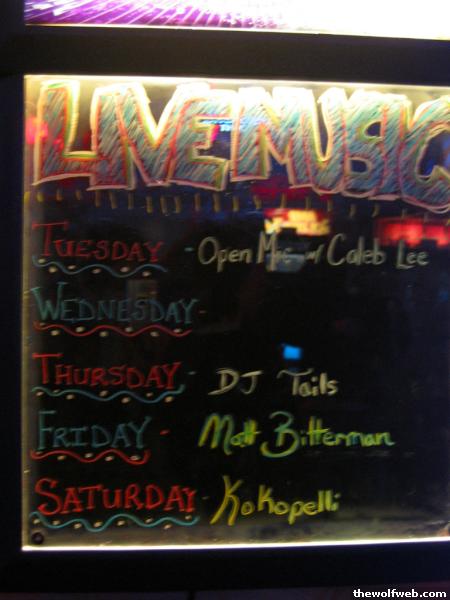 LIVE MUSIC
TUESDAY - Open Mic w/ Caleb Lee
WEDNESDAY -
THURSDAY - DJ Tails
FRIDAY - Matt Bitterman
SATURDAY - Kokopelli
thewolfweb.com